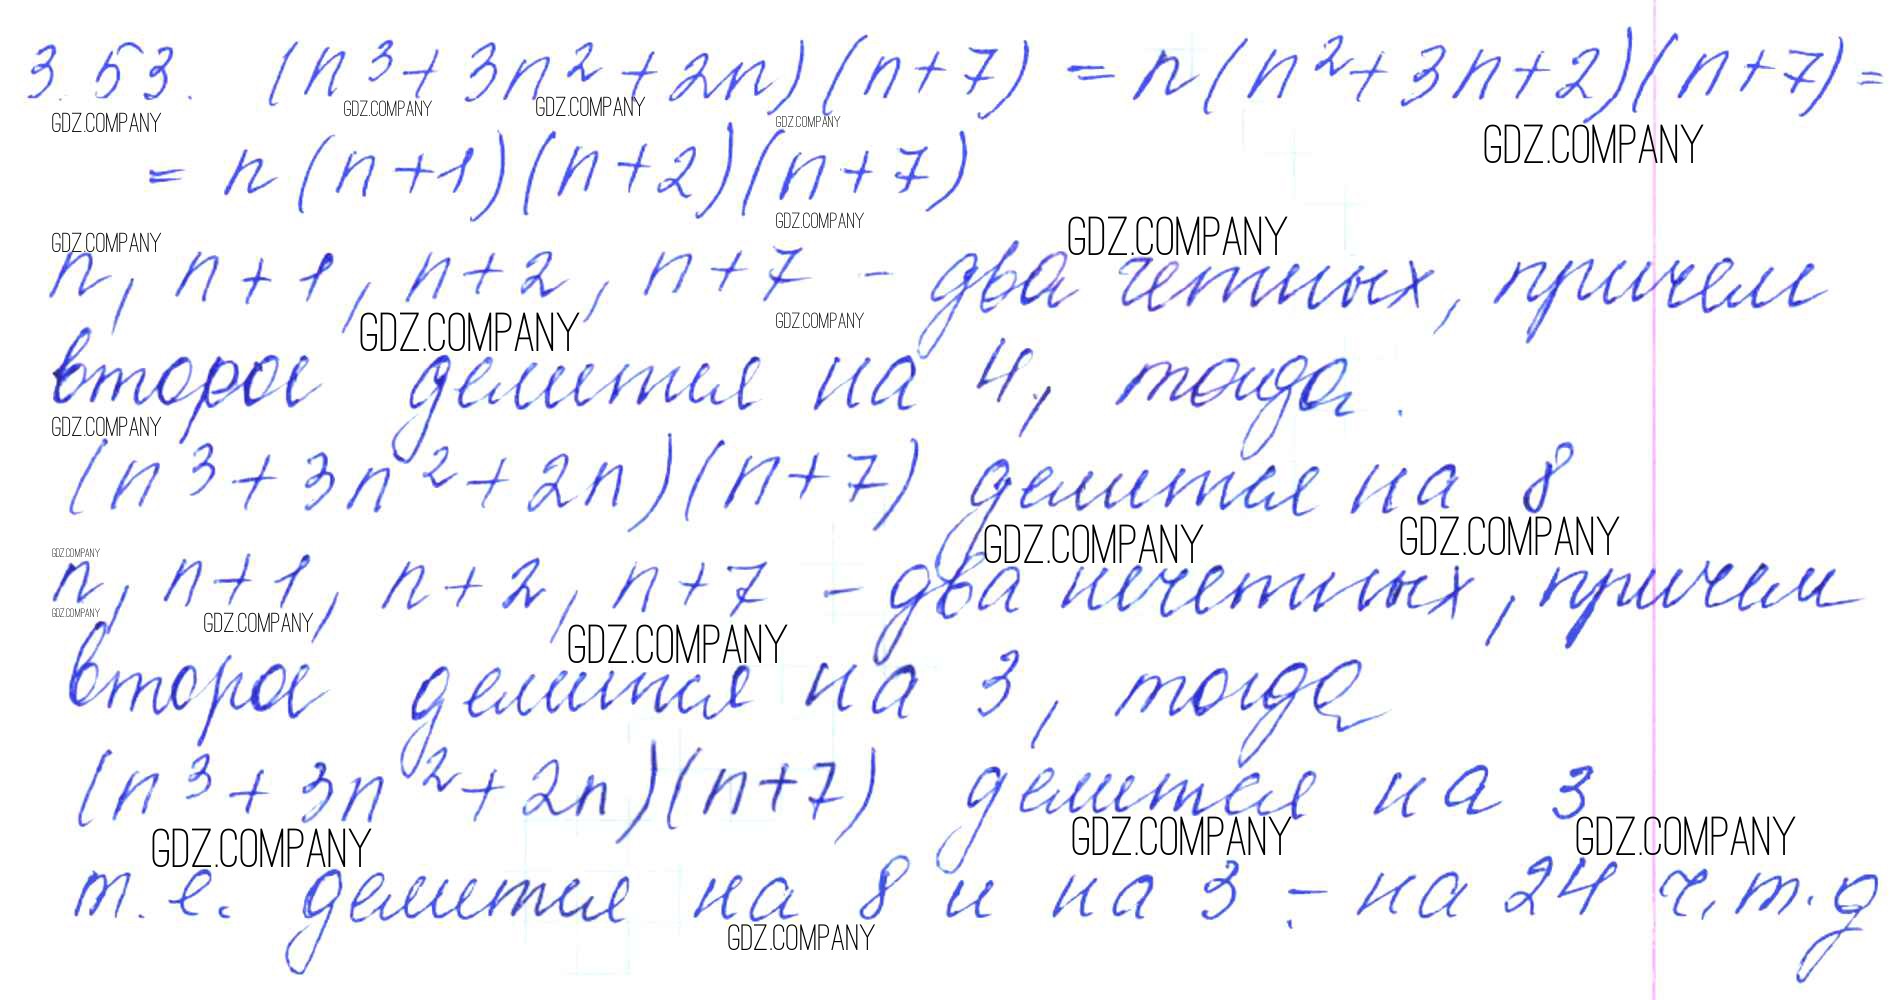 3.53. (n³+3n²+2n)(n+7) = n(n²+3n+2)(n+7) =
GDZ.COMPANY GDZ.COMPANY GDZ.COMPANY GDZ.COMPANY GDZ.COMPANY
= n(n+1)(n+2)(n+7)
GDZ.COMPANY GDZ.COMPANY GDZ.COMPANY
n, n+1, n+2, n+7 – два четных, причем
GDZ.COMPANY GDZ.COMPANY
второе делится на 4, тогда.
GDZ.COMPANY
(n³+3n²+2n)(n+7) делится на 8
GDZ.COMPANY GDZ.COMPANY GDZ.COMPANY
n, n+1, n+2, n+7 – два нечетных, причем
GDZ.COMPANY GDZ.COMPANY GDZ.COMPANY
второе делится на 3, тогда
(n³+3n²+2n)(n+7) делится на 3
GDZ.COMPANY GDZ.COMPANY GDZ.COMPANY
т.е. делится на 8 и на 3 – на 24 ч.т.д
GDZ.COMPANY